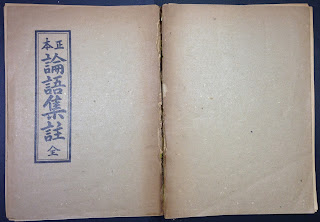 正本
論語集註
全